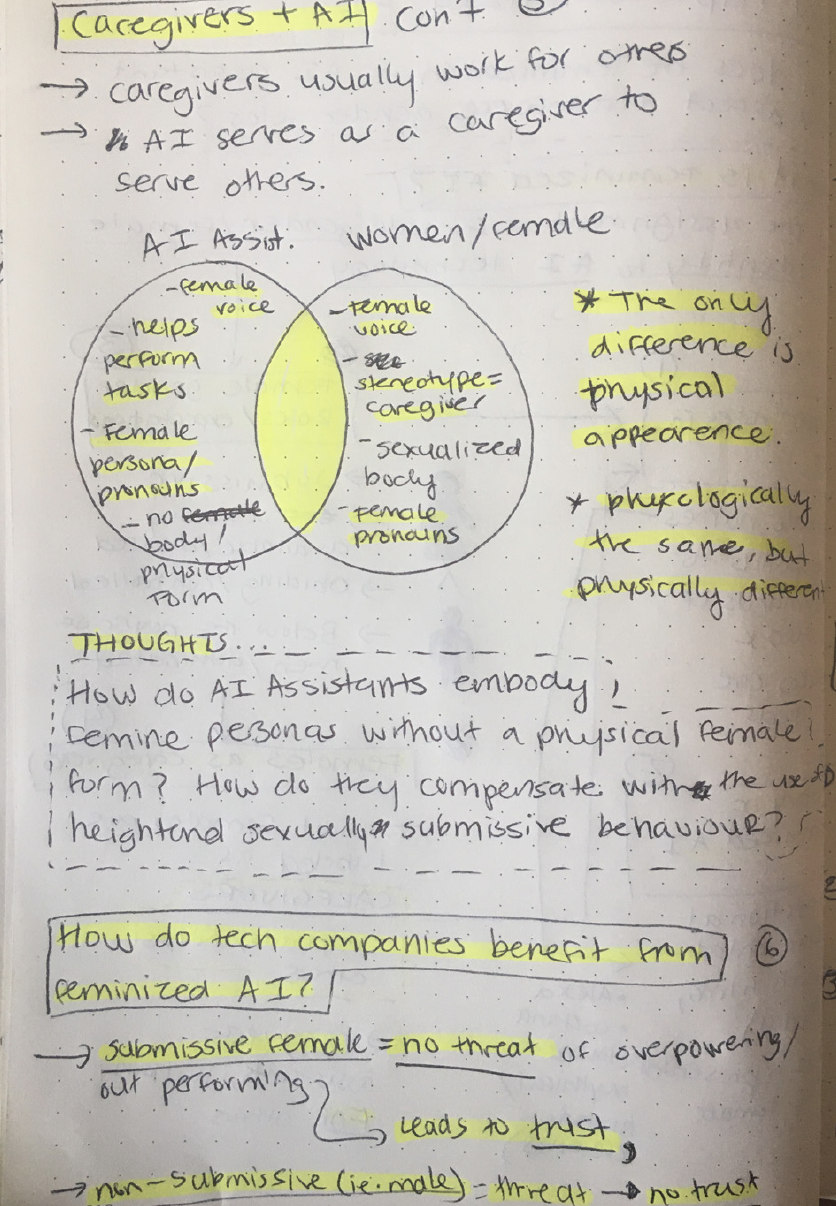 Caregivers + AI con't
→ caregivers usually work for others
→ AI serves as a caregiver to
serve others.
AI Assist.
- female
voice
- helps
perform
tasks
- Female
persona/
pronouns
- no female
body/
physical
form
women/female
- female
voice
-
stereotype=
caregiver
- sexualized
body
- female
pronouns
* The only
difference is
physical
appearence.
* phycologically
the same, but
physically different
THOUGHTS...
How do AI Assistants embody
femine personas without a physical female
form? How do they compensate with the use of
heightend sexually submissive behaviour?
How do tech companies benefit from
feminized AI?
6
→ submissive female = no threat of overpowering/
out performing
leads to trust,
→ non-submissive (ie. male) = threat → no trust